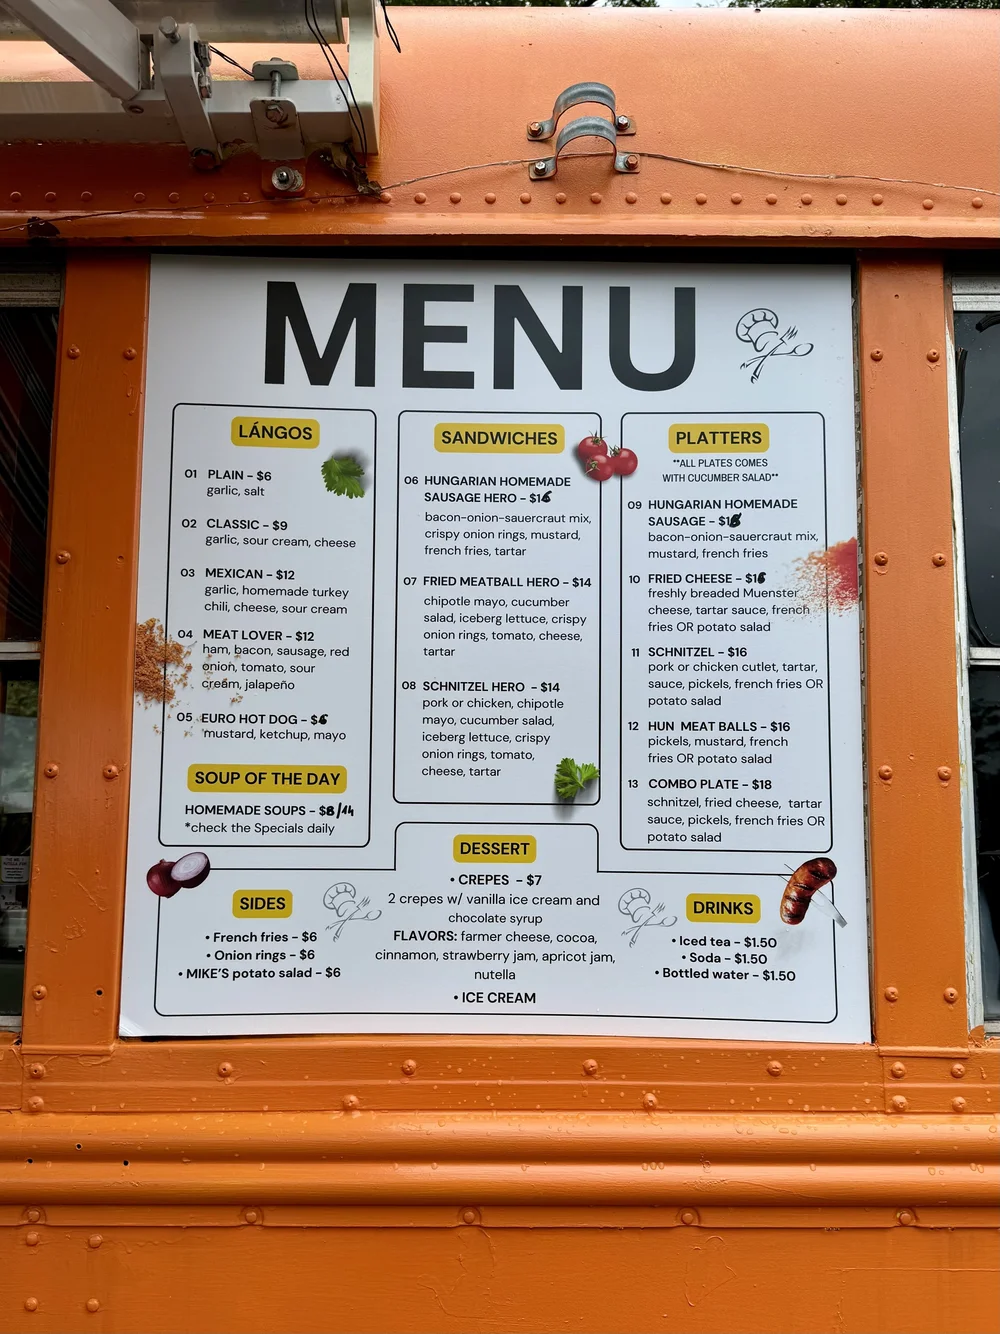 MENU
LÁNGOS
01 PLAIN – $6
garlic, salt
02 CLASSIC – $9
garlic, sour cream, cheese
03 MEXICAN – $12
garlic, homemade turkey
chili, cheese, sour cream
04 MEAT LOVER – $12
ham, bacon, sausage, red
onion, tomato, sour
cream, jalapeño
05 EURO HOT DOG – $6
mustard, ketchup, mayo
SOUP OF THE DAY
HOMEMADE SOUPS – $8/14
*check the Specials daily
SANDWICHES
06 HUNGARIAN HOMEMADE
SAUSAGE HERO – $16
bacon-onion-sauercraut mix,
crispy onion rings, mustard,
french fries, tartar
07 FRIED MEATBALL HERO – $14
chipotle mayo, cucumber
salad, iceberg lettuce, crispy
onion rings, tomato, cheese,
tartar
08 SCHNITZEL HERO – $14
pork or chicken, chipotle
mayo, cucumber salad,
iceberg lettuce, crispy
onion rings, tomato,
cheese, tartar
PLATTERS
**ALL PLATES COMES
WITH CUCUMBER SALAD**
09 HUNGARIAN HOMEMADE
SAUSAGE – $18
bacon-onion-sauercraut mix,
mustard, french fries
10 FRIED CHEESE – $16
freshly breaded Muenster
cheese, tartar sauce, french
fries OR potato salad
11 SCHNITZEL – $16
pork or chicken cutlet, tartar,
sauce, pickels, french fries OR
potato salad
12 HUN MEAT BALLS – $16
pickels, mustard, french
fries OR potato salad
13 COMBO PLATE – $18
schnitzel, fried cheese, tartar
sauce, pickels, french fries OR
potato salad
SIDES
• French fries – $6
• Onion rings – $6
• MIKE'S potato salad – $6
DESSERT
• CREPES – $7
2 crepes w/ vanilla ice cream and
chocolate syrup
FLAVORS: farmer cheese, cocoa,
cinnamon, strawberry jam, apricot jam,
nutella
• ICE CREAM
DRINKS
• Iced tea – $1.50
• Soda – $1.50
• Bottled water – $1.50